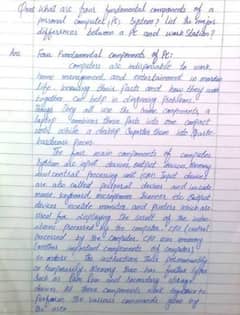 Ques What are four fundamental components of a
personal computer (PC) System? List the major
differences between a PC and work station?
Ans Four Fundamental components of PC:
Computers are indispensable to work,
home management and entertainment in modern
life. knowing their parts and how they work
together can help in diagnosing problems.
They all use the same components, a
laptop combines these parts into one compact
unit while a desktop separates them into
hardware pieces.
The four main components of computer
system are input devices, output devices, memory
and central processing unit (CPU). Input devices
are also called peripheral devices and include
mouse, keyboard, microphone, scanner etc. Output
devices include monitor and printers which are
used for displaying the result of the
processed by the computer. CPU (central
processed by the computer. CPU uses memory
(another important components of computers)
to store the instructions either permanently
or temporarily. Memory then has further types
such as RAM, ROM and secondary storage
devices. All these components work together to
perform the various commands given by
the user.